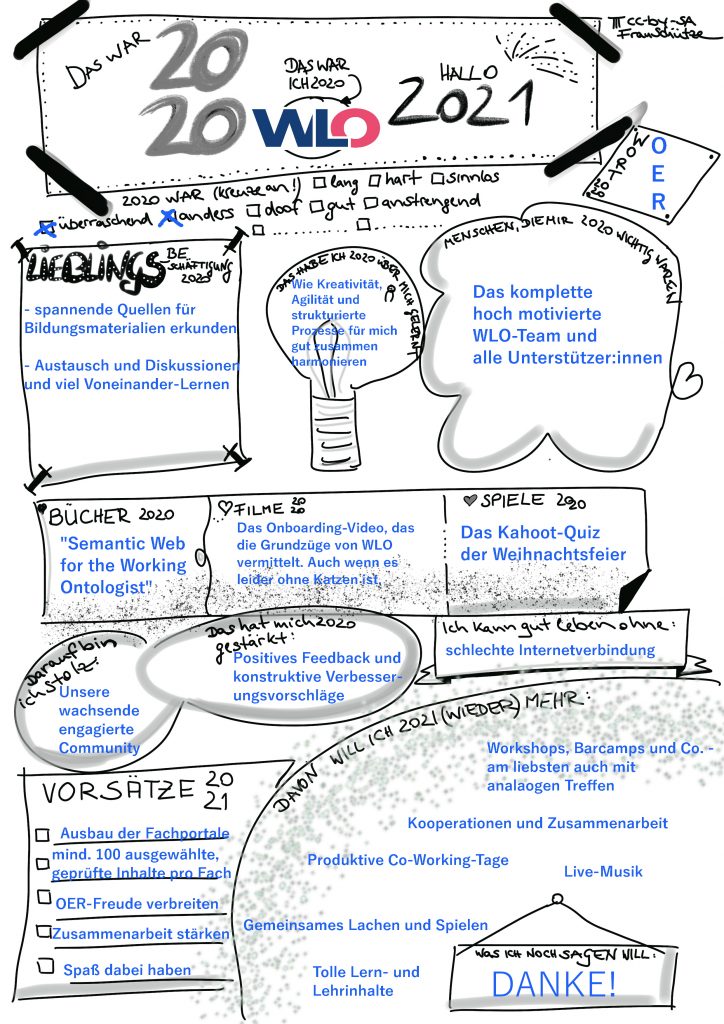 CC-by-SA
FrauSchütze
DAS WAR
2020
DAS WAR
ICH 2020
WLO
HALLO
2021
WORT
2020
OER
2020 WAR (kreuze an!) lang hart sinnlos
überraschend anders doof gut anstrengend
LIEBLINGS BE
SCHÄFTIGUNG
2020
- spannende Quellen für
Bildungsmaterialien erkunden
- Austausch und Diskussionen
und viel Voneinander-Lernen
DAS HABE ICH 2020 ÜBER MICH GELERNT
Wie Kreativität,
Agilität und
strukturierte
Prozesse für mich
gut zusammen
harmonieren
MENSCHEN, DIE MIR 2020 WICHTIG WAREN
Das komplette
hoch motivierte
WLO-Team und
alle Unterstützer:innen
BÜCHER 2020
"Semantic Web
for the Working
Ontologist"
FILME 2020
Das Onboarding-Video, das
die Grundzüge von WLO
vermittelt. Auch wenn es
leider ohne Katzen ist
SPIELE 2020
Das Kahoot-Quiz
der Weihnachtsfeier
Darauf bin
ich stolz:
Unsere
wachsende
engagierte
Community
Das hat mich 2020
gestärkt:
Positives Feedback und
konstruktive Verbesser-
ungsvorschläge
Ich kann gut leben ohne:
schlechte Internetverbindung
VORSÄTZE 2021
Ausbau der Fachportale
mind. 100 ausgewählte,
geprüfte Inhalte pro Fach
OER-Freude verbreiten
Zusammenarbeit stärken
Spaß dabei haben
DAVON WILL ICH 2021 (WIEDER) MEHR:
Workshops, Barcamps und Co. -
am liebsten auch mit
analaogen Treffen
Kooperationen und Zusammenarbeit
Produktive Co-Working-Tage
Live-Musik
Gemeinsames Lachen und Spielen
Tolle Lern- und
Lehrinhalte
WAS ICH NOCH SAGEN WILL:
DANKE!